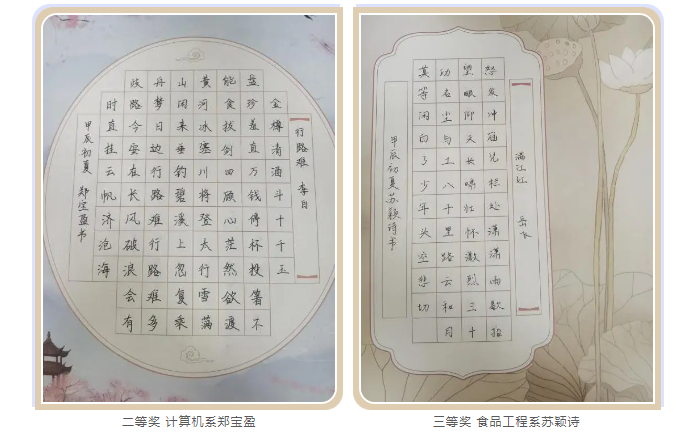 行路难 李白
金樽清酒斗十千玉
盘珍羞直万钱停杯投箸不
能食拔剑四顾心茫然欲渡
黄河冰塞川将登太行雪满
山闲来垂钓碧溪上忽复乘
舟梦日边行路难行路难多
歧路今安在长风破浪会有
时直挂云帆济沧海
甲辰初夏 郑宝盈书
二等奖 计算机系郑宝盈
满江红 岳飞
怒发冲冠凭栏处潇潇雨歇抬
望眼仰天长啸壮怀激烈三十
功名尘与土八千里路云和月
莫等闲白了少年头空悲切
甲辰初夏苏颖诗书
三等奖 食品工程系苏颖诗